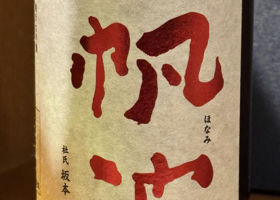 帆波
ほなみ
杜氏 坂本